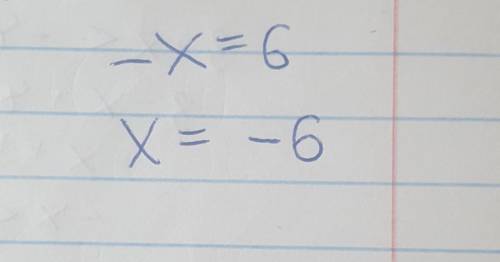 -x=6
x= -6